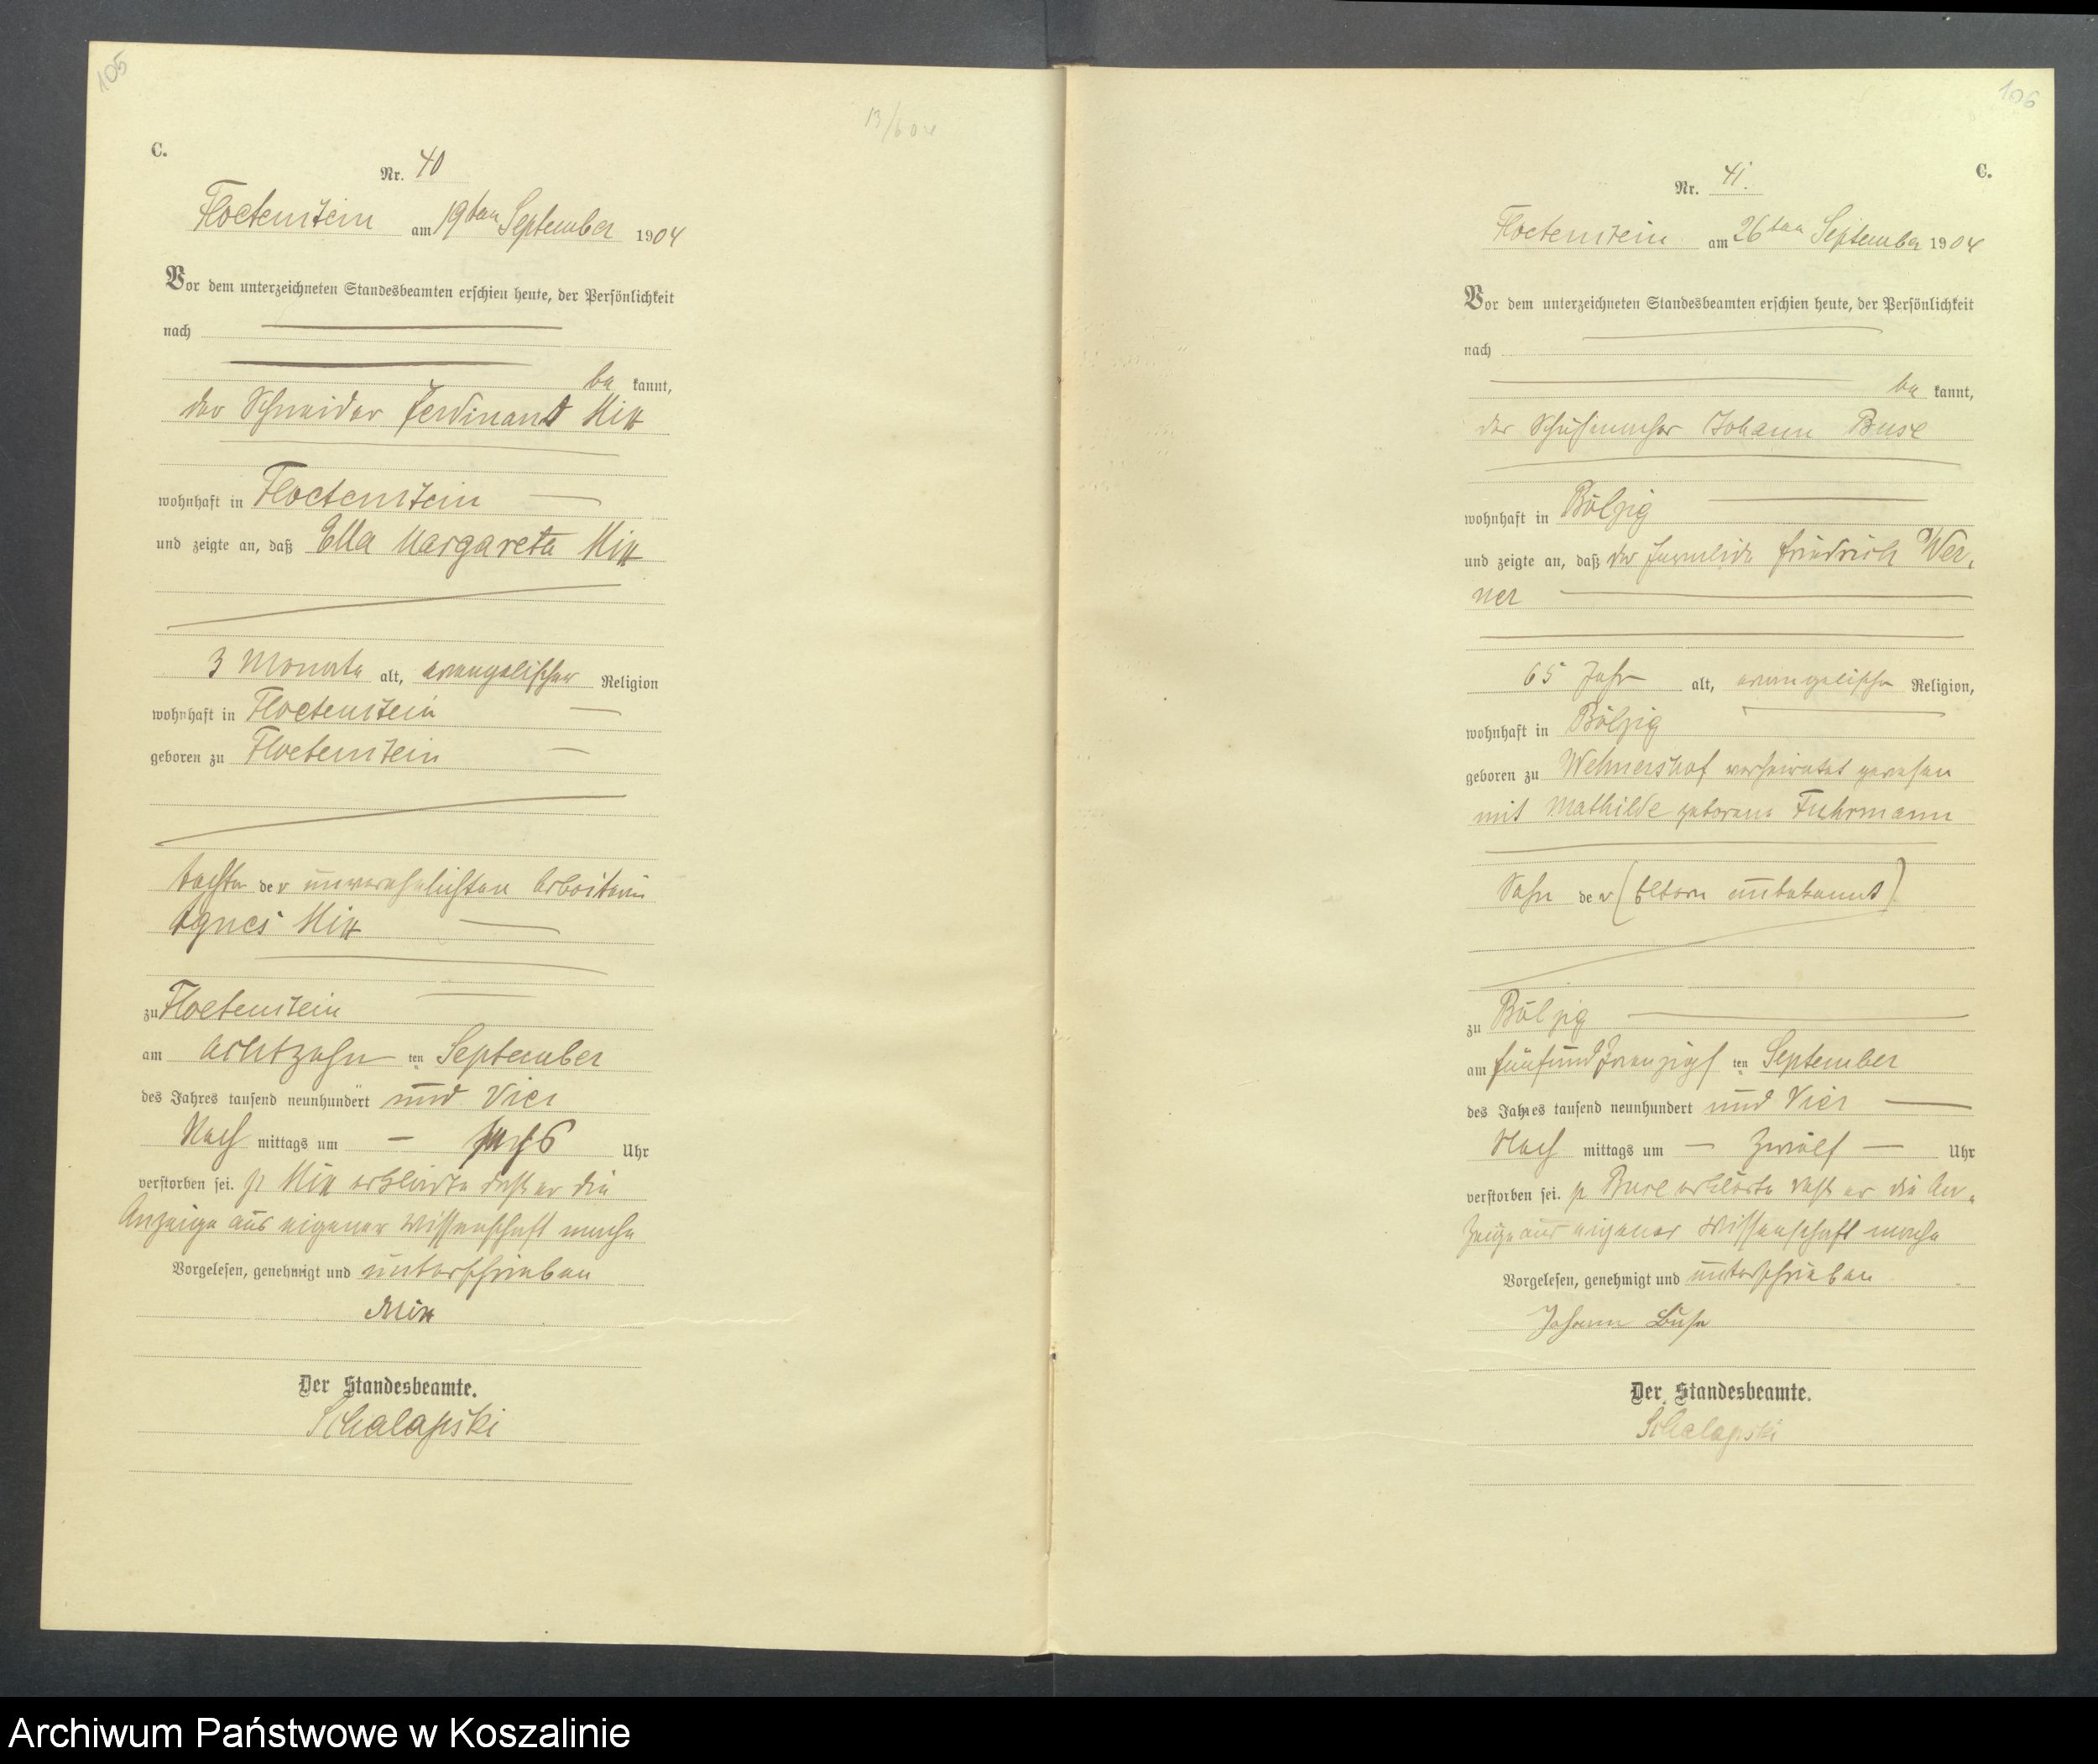 105
13/604
C.
Nr. 40
Floetenstein am 19ten September 1904
Vor dem unterzeichneten Standesbeamten erschien heute, der Persönlichkeit
nach
be kannt,
der Schneider Ferdinand Mix
wohnhaft in Floetenstein
und zeigte an, daß Ella Margareta Mix
3 Monate alt, evangelischer Religion
wohnhaft in Floetenstein
geboren zu Floetenstein
Tochter der unverehelichten Arbeiterin
Agnes Mix
zu Floetenstein
am achtzehn ten September
des Jahres tausend neunhundert und vier
Nach mittags um 6 Uhr
verstorben sei. p Mix erklärte daß er die
Anzeige aus eigener Wissenschaft mache
Vorgelesen, genehmigt und unterschrieben
Mix
Der Standesbeamte.
Schalapski
106
C.
Nr. 41.
Floetenstein am 26ten September 1904
Vor dem unterzeichneten Standesbeamten erschien heute, der Persönlichkeit
nach
be kannt,
der Schuhmacher Johann Buse
wohnhaft in Bölzig
und zeigte an, daß der Invalide Friedrich Wer-
ner
65 Jahr alt, evangelischer Religion,
wohnhaft in Bölzig
geboren zu Wehnershof verheiratet gewesen
mit Mathilde geborene Fuhrmann
Sohn der (Eltern unbekannt)
zu Bölzig
am fünfundzwanzigs ten September
des Jahres tausend neunhundert und vier
Nach mittags um zwölf Uhr
verstorben sei. p Buse erklärte daß er die An-
zeige aus eigener Wissenschaft mache
Vorgelesen, genehmigt und unterschrieben
Johann Buse
Der Standesbeamte.
Schalapski
Archiwum Państwowe w Koszalinie